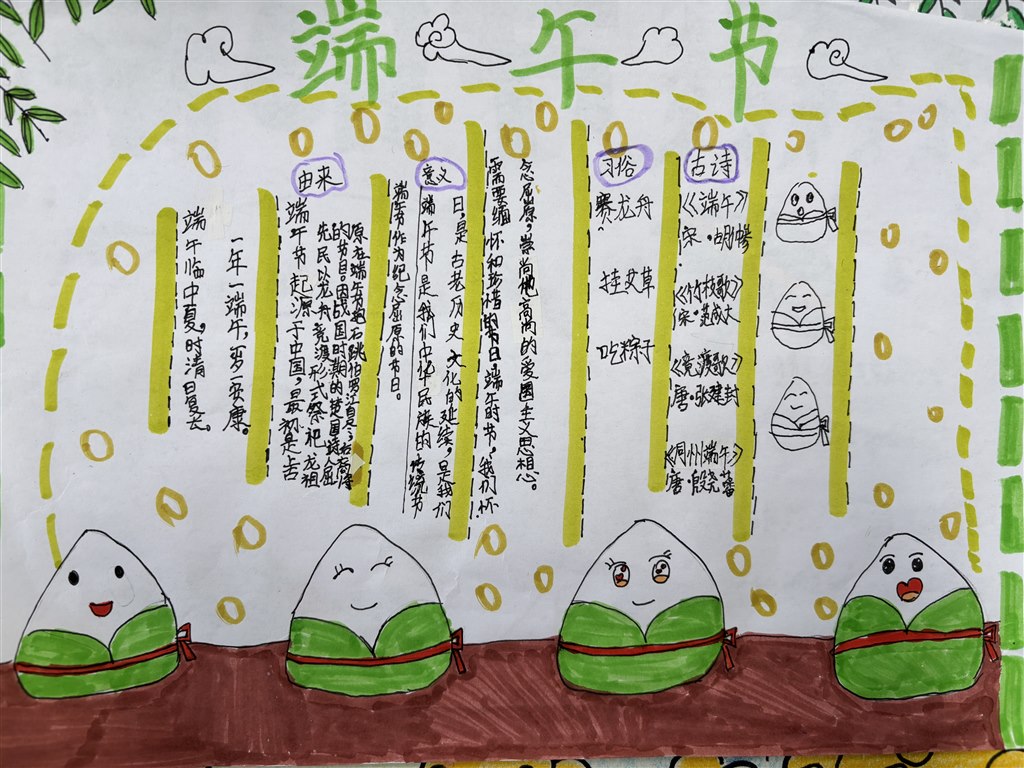 端午节
端午临中夏,时清日复长。
一年一端午,岁一安康。
由来
端午节起源于中国,最初是古
先民以龙舟竞渡形式祭祀龙祖
的节日。因战国时期的楚国诗人屈
原在端午节抱石跳汨罗江自尽,
端午节作为纪念屈原的节日。
意义
端午节是我们中华民族的传统节
日,是古老历史文化的延续,是我们
需要缅怀和珍惜的节日,端午时节,我们怀
念屈原,崇尚他高尚的爱国主义思想。
习俗
赛龙舟
挂艾草
吃粽子
古诗
《端午》
宋·胡仲
《竹枝歌》
宋·范成大
《竞渡歌》
唐·张建封
《同州端午》
唐·殷尧藩